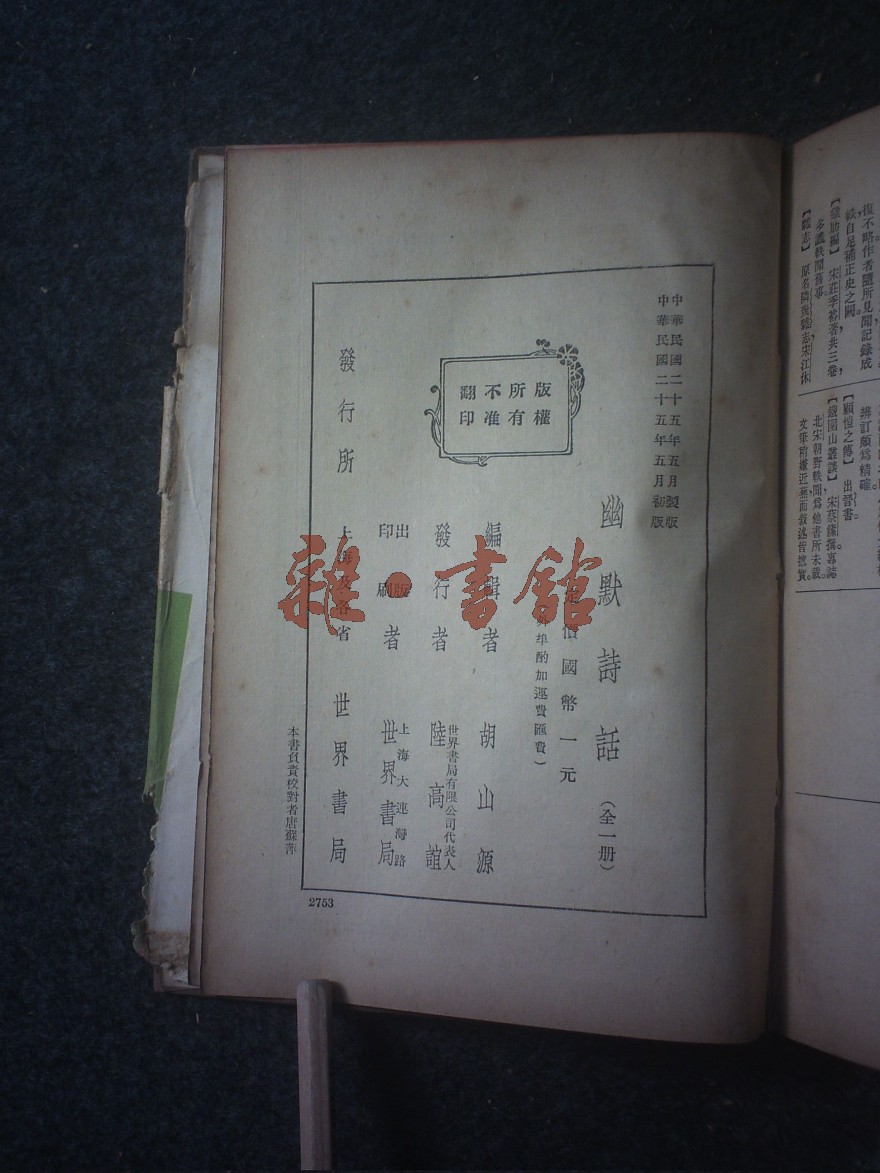 復不略作者隨所見聞記錄成
帙自足補正史之闕。
【雞肋編】 宋莊季裕著共三卷,
多識軼聞舊事。
宋江休
辨訂頗爲精確。
【顧愷之傳】 出晉書。
【鐵圍山叢談】 宋蔡絛撰專誌
北宋朝野軼聞爲他書所未載。
文筆稍纖近蕪而敘述皆摭實。
中華民國二十五年五月製版
中華民國二十五年五月初版
幽默詩話(全一册)
價國幣一元
埠酌加運費匯費)
版權所有不准翻印
編輯者 胡山源
發行者 世界書局有限公司代表人 陸高誼
出版印刷者 上海大連灣路 世界書局
發行所 上海及各省 世界書局
本書負責校對者唐蘇萍
2753
雜·書館